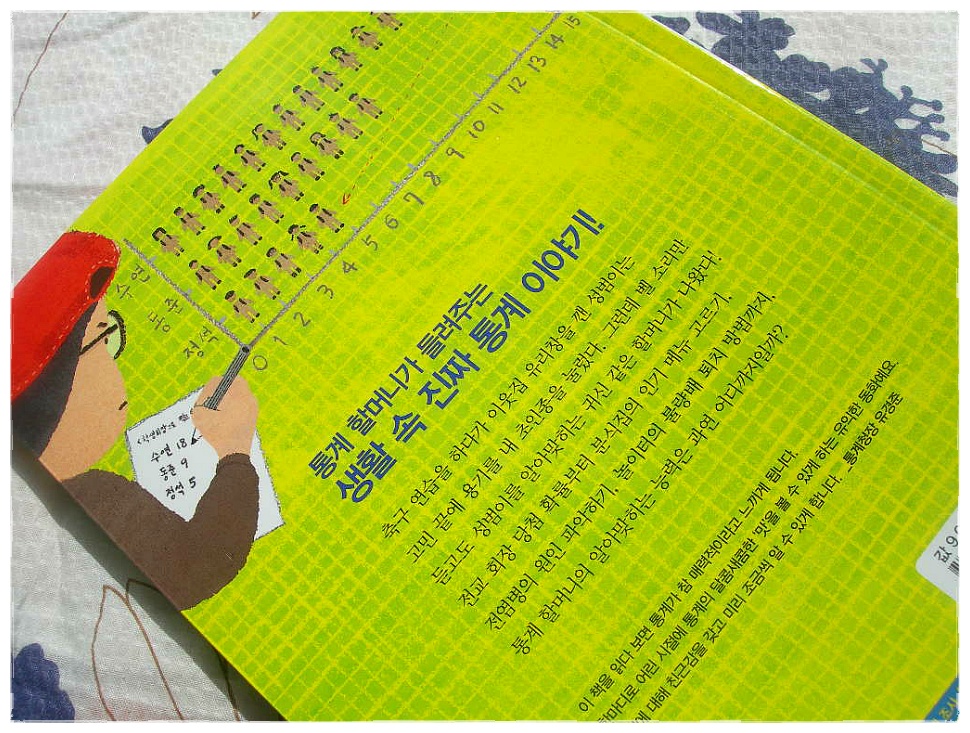 수연
동준
정석
0 1 2 3 4 5 6 7 8 9 10 11 12 13 14 15
수연 18
동준 9
정석 5
통계 할머니가 들려주는
생활 속 진짜 통계 이야기!
축구 연습을 하다가 이웃집 유리창을 깬 성범이는
고민 끝에 용기를 내 초인종을 눌렀다. 그런데 벨 소리만
듣고도 성범이를 알아맞히는 귀신 같은 할머니가 나왔다!
전교 회장 당첨 확률부터 분식집의 인기 메뉴 고르기,
전염병의 원인 파악하기, 놀이터의 불량배 퇴치 방법까지.
통계 할머니의 알아맞히는 능력은 과연 어디까지일까?
이 책을 읽다 보면 통계가 참 매력적이라고 느끼게 됩니다.
한마디로 어린 시절에 통계의 달콤새콤한 맛을 볼 수 있게 하는 유익한 동화예요.
에 대해 친근감을 갖고 미리 조금씩 알 수 있게 합니다. _ 통계청장 유경준
값 9